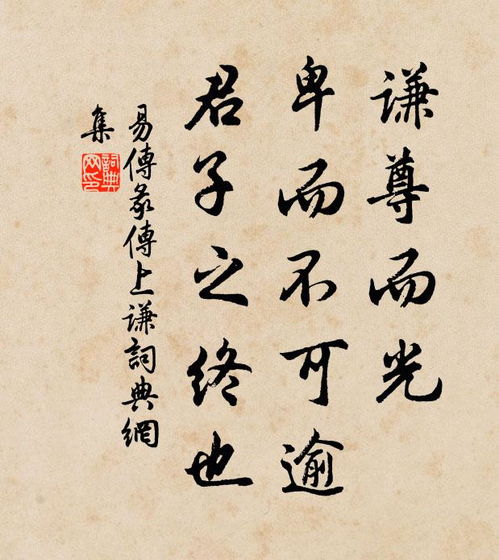 谦尊而光
卑而不可逾
君子之终也
易傳彖傳上谦詞典網
集
詞典
网印